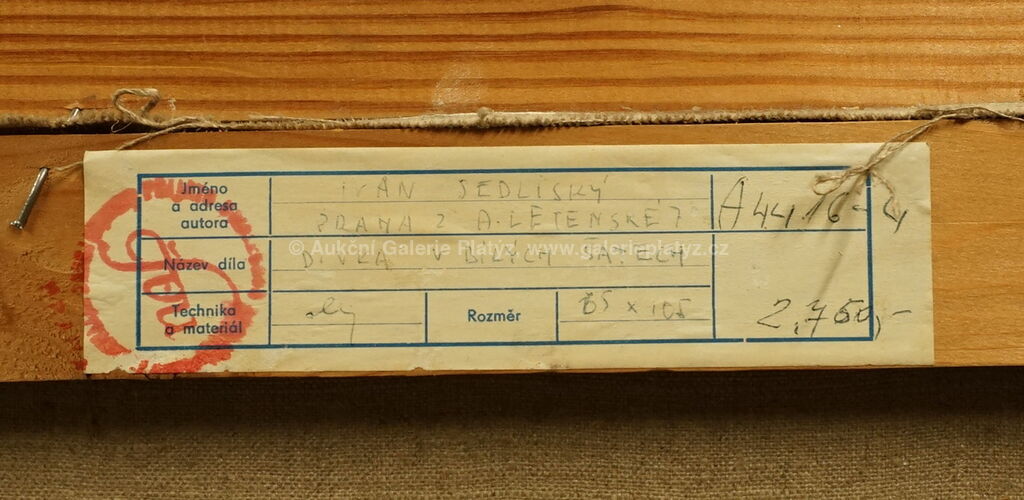 Jméno
a adresa
autora
IVAN SEDLISKÝ
PRAHA 2 A. LETENSKÉ 7
A 44 16-4
Název díla
DÍVKA V BÍLÝCH ŠATECH
© Aukční Galerie Platýz www.galerieplatyz.cz
Technika
a materiál
olej
Rozměr
85 x 105
2.750,-